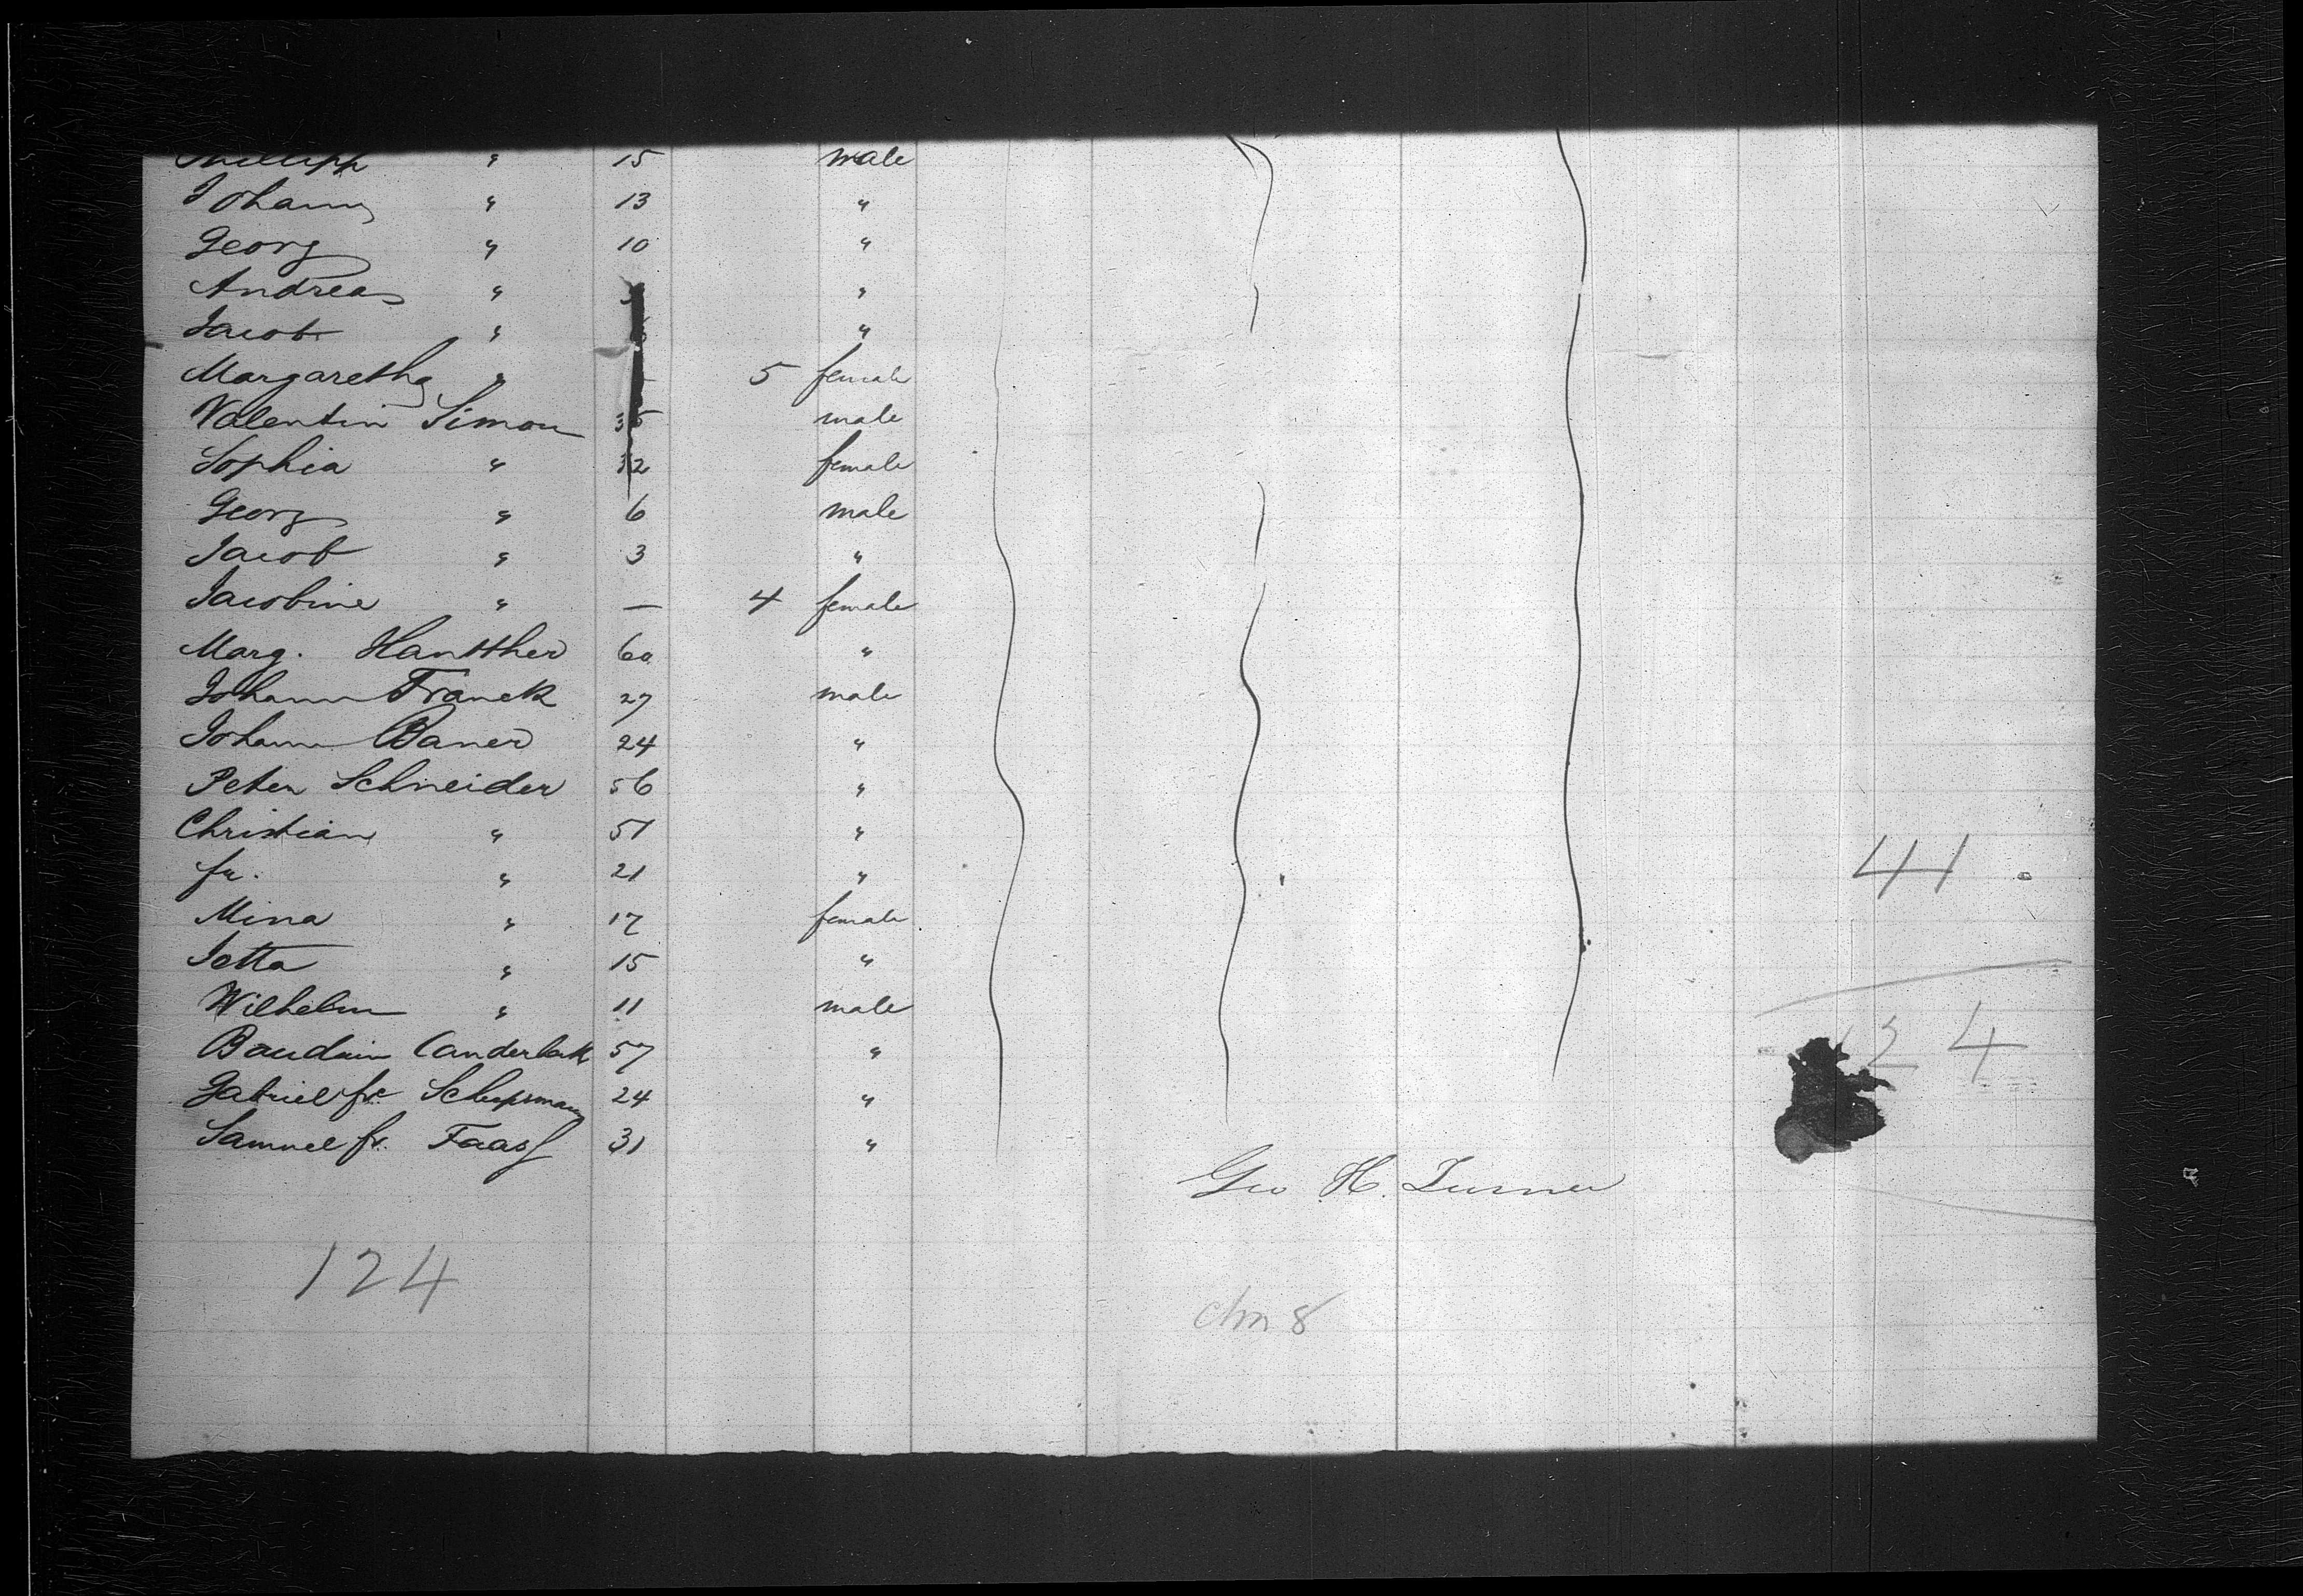 Phillipp " 15 male
Johann " 13 "
Georg " 10 "
Andreas " "
Jacob " "
Margaretha " 5 female
Valentin Simon 35 male
Sophia " 32 female
Georg " 6 male
Jacob " 3 "
Jacobine " — 4 female
Marg. Hantther 60 "
Johann Franck 27 male
Johann Baner 24 "
Peter Schneider 56 "
Christian " 51 "
fr. " 21 "
41
Mina " 17 female
Jetta " 15 "
Wilhelm " 11 male
Baudüin Canderbak 57 "
124
Gabriel fr. Schupsmann 24 "
Samuel fr. Faass 31 "
Geo H. Turner
124
chn 8